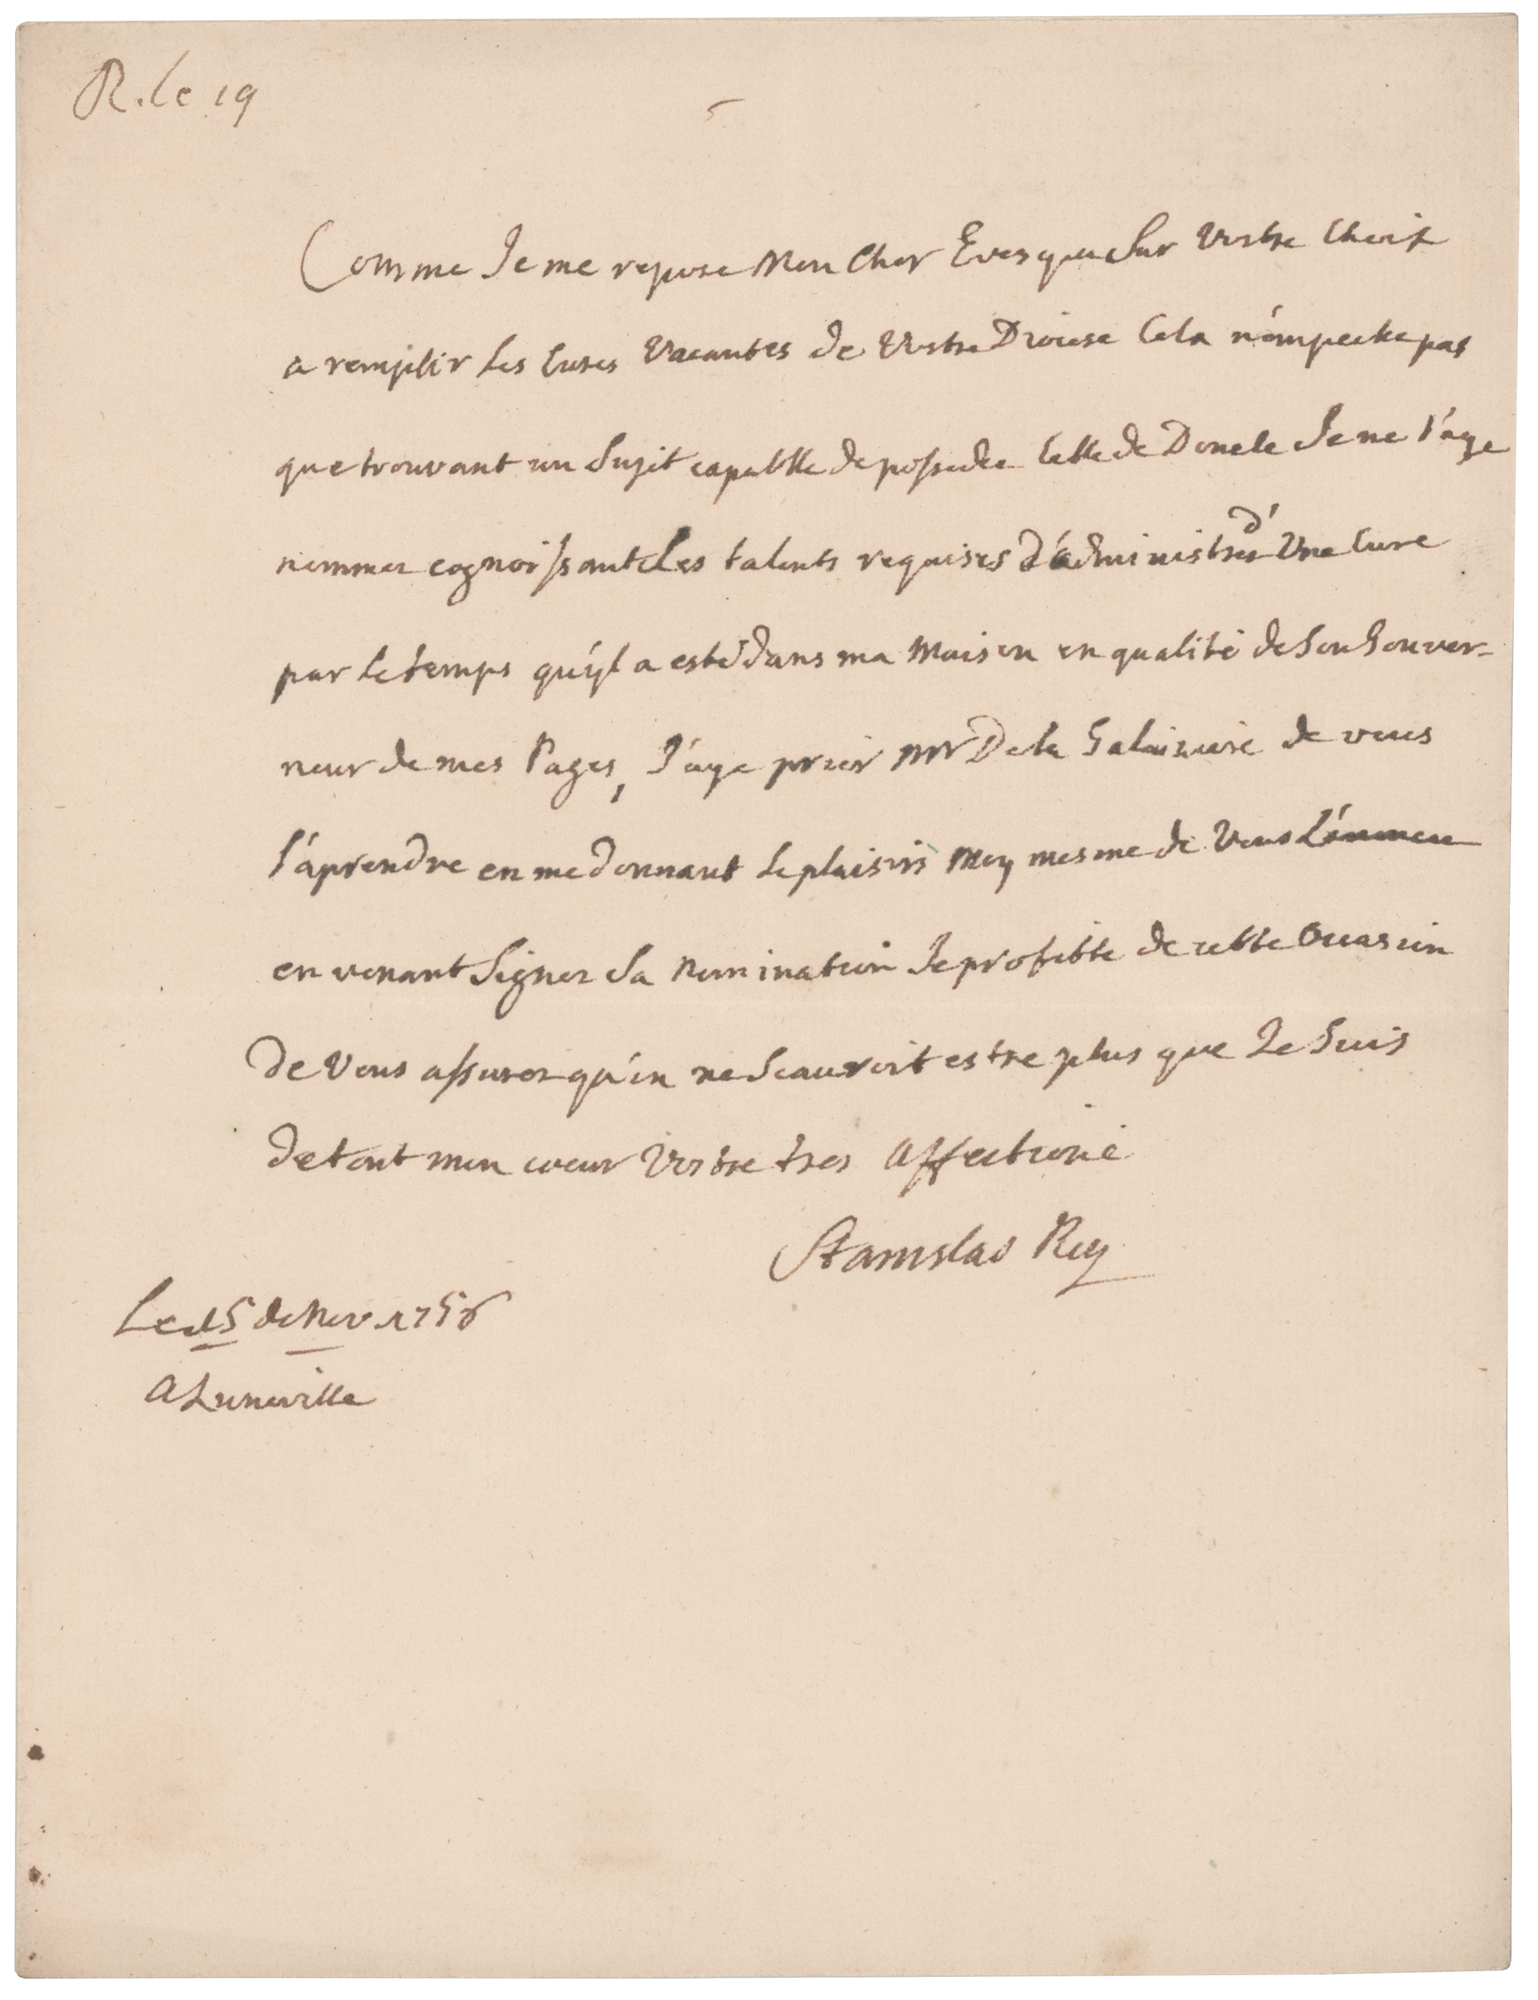 R. le 19
Comme Je me repose Mon Cher Evesque Sur Vostre Choix
a remplir les Cures Vacantes de Vostre Diocese Cela n'émpeche pas
que trouvant un Sujet capablle de posseder Celle de Je ne l'aye
nommer cognoissant Les talents requises d'administrer d'Une Cure
par le temps qu'yl a esté dans ma Maison en qualité de Souver-
neur de mes Pages, J'aye prier Mr De la Galaiziere de vous
l'aprendre en me donnant le plaisir Moy mesme de Vous
en venant Signer Sa Nomination Je profitte de cette Occasion
de Vous assurer qu'on ne Scauroit estre plus que Je Suis
de tout mon coeur Vostre tres affectioné
Stanislas Roy
Le 15 de Nov 1756
a Luneville